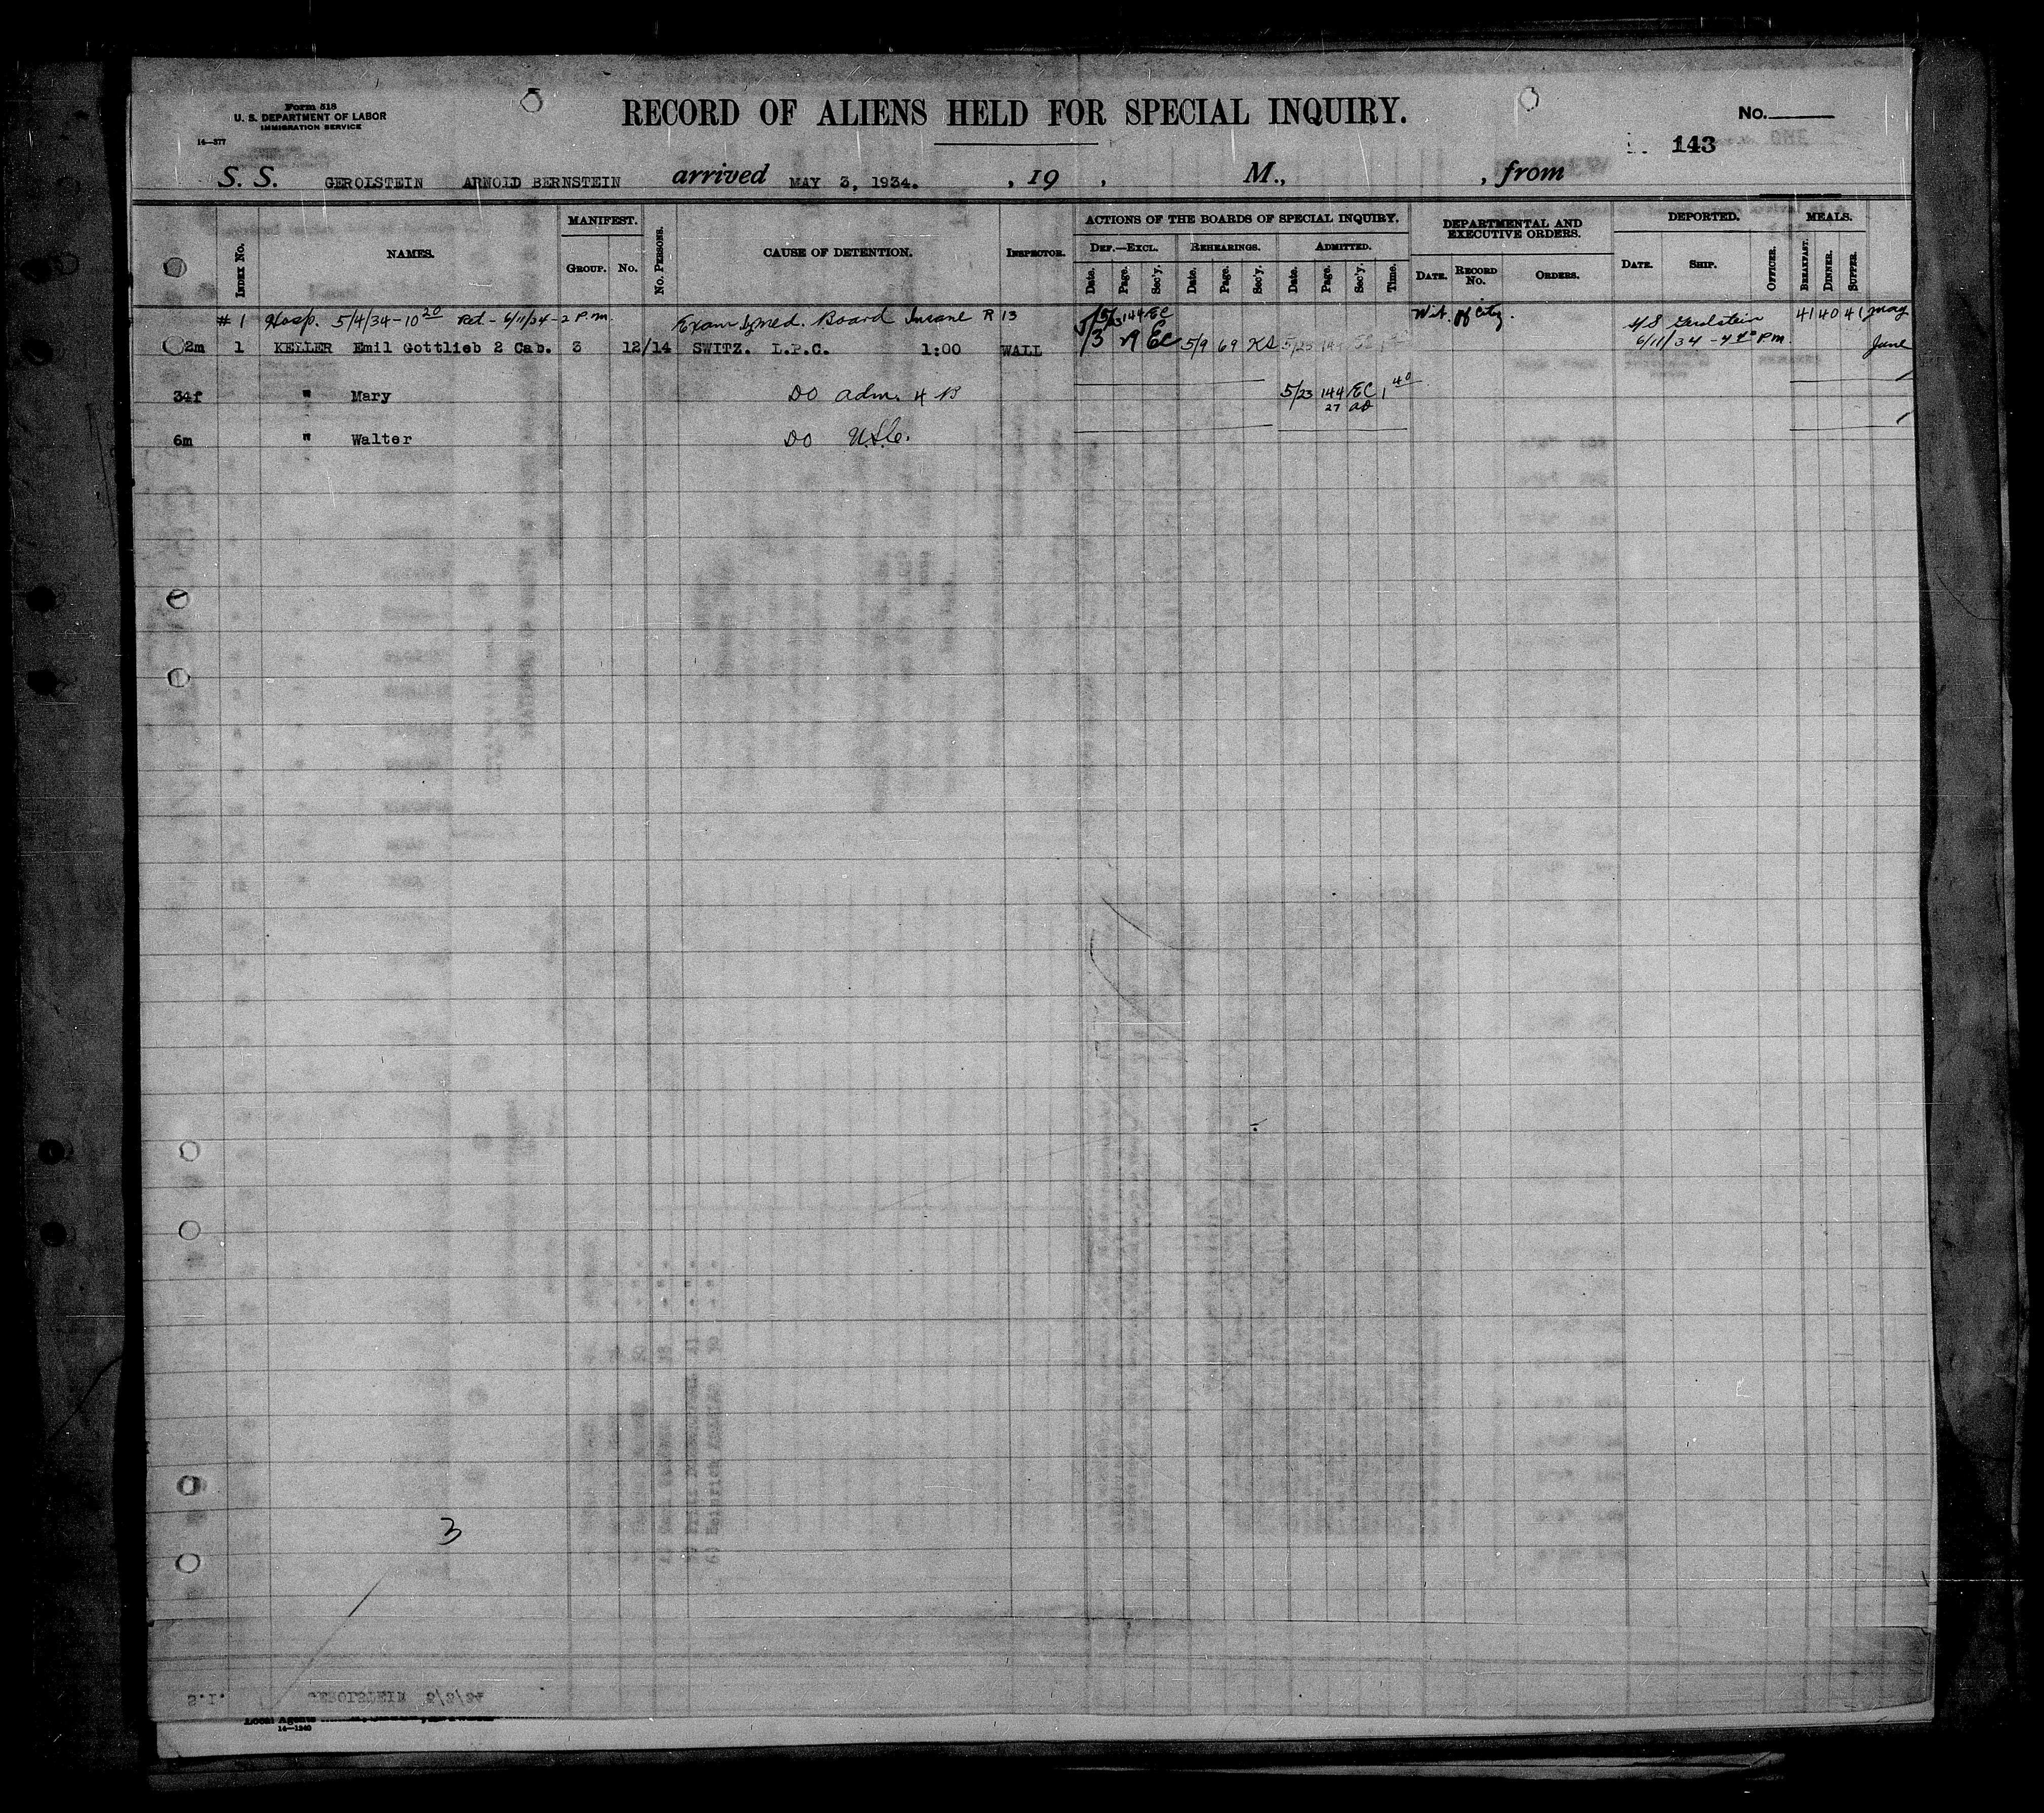 Form 518
U. S. DEPARTMENT OF LABOR
IMMIGRATION SERVICE
14—577
RECORD OF ALIENS HELD FOR SPECIAL INQUIRY.
No.
143
S. S. GEROLSTEIN ARNOLD BERNSTEIN arrived MAY 3, 1934. , 19 , M., , from
Index No. NAMES. MANIFEST. Group. No. No. Persons. CAUSE OF DETENTION. Inspector. ACTIONS OF THE BOARDS OF SPECIAL INQUIRY. DEPARTMENTAL AND EXECUTIVE ORDERS. DEPORTED. MEALS.
Def.—Excl. Rehearings. Admitted.
Date. Page. Sec'y. Date. Page. Sec'y. Date. Page. Sec'y. Time. Date. Record No. Orders. Date. Ship. Officer. Breakfast. Dinner. Supper.
# 1 Hosp. 5/4/34-10 20 Ret - 6/11/34-2 P.m. Exam by med. Board Insane R 13 144 EC Wit. off City. 41 40 41 May
M/S Gerolstein
2m 1 KELLER Emil Gottlieb 2 Cab. 3 12/14 SWITZ. L.P.C. 1:00 WALL 5/3 EC 5/9 69 KS 6/11/34 - 4 P.M. June
34f " Mary DO adm. 4 B 5/23 144 EC 1 40
27
6m " Walter DO U.S.C.
3
S.I. GEROLSTEIN 5/3/34
Local Agents
14—1240